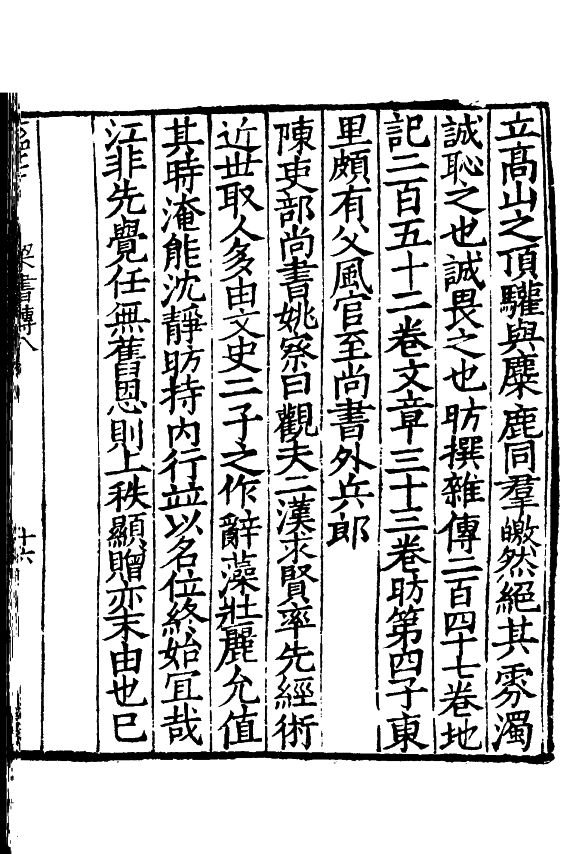 立髙山之頂驩與麋鹿同羣皦然絕其雰濁
誠恥之也誠畏之也昉撰雜傳二百四十七卷地
記二百五十二卷文章三十三卷昉第四子東
里頗有父風官至尚書外兵郎
陳吏部尚書姚察曰觀夫二漢求賢率先經術
近世取人多由文史二子之作辭藻壯麗允值
其時淹能沈靜昉持內行並以名位終始宜哉
江非先覺任無舊恩則上秩顯贈亦末由也已
梁書傳八
十六